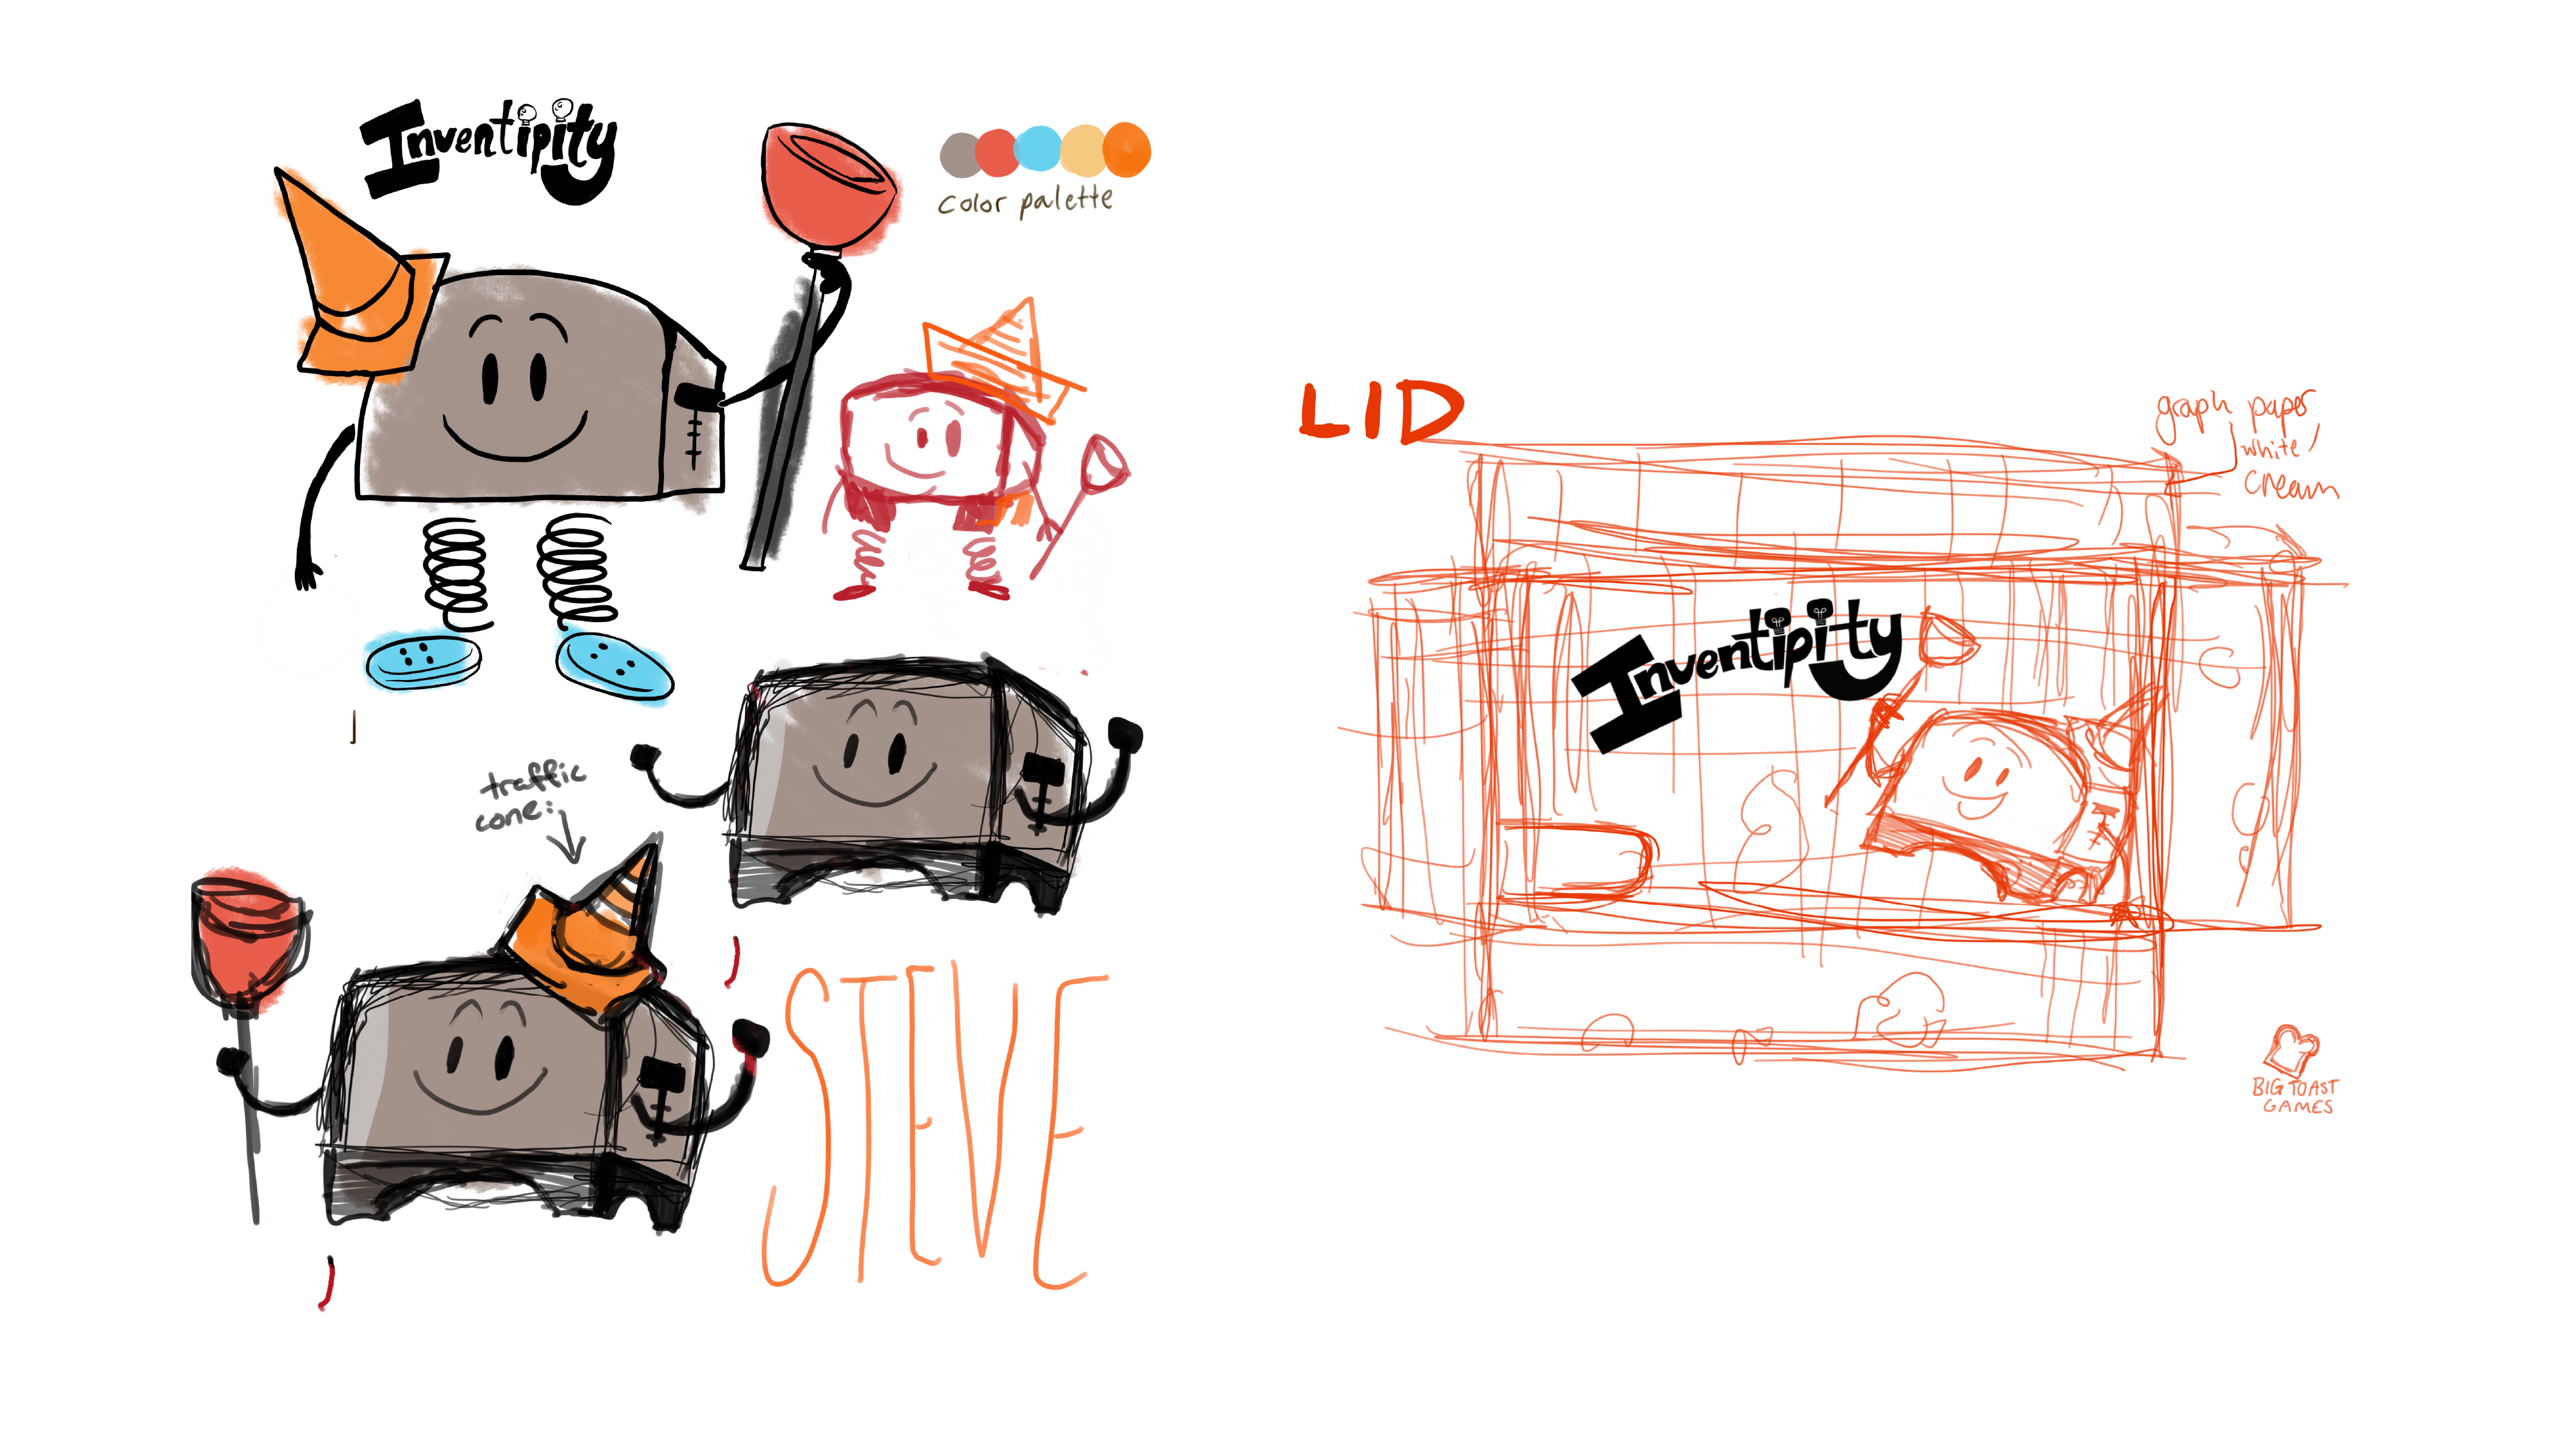 Inventipity
color palette
traffic
cone:
STEVE
LID
graph paper
white/
cream
Inventipity
BIG TOAST
GAMES